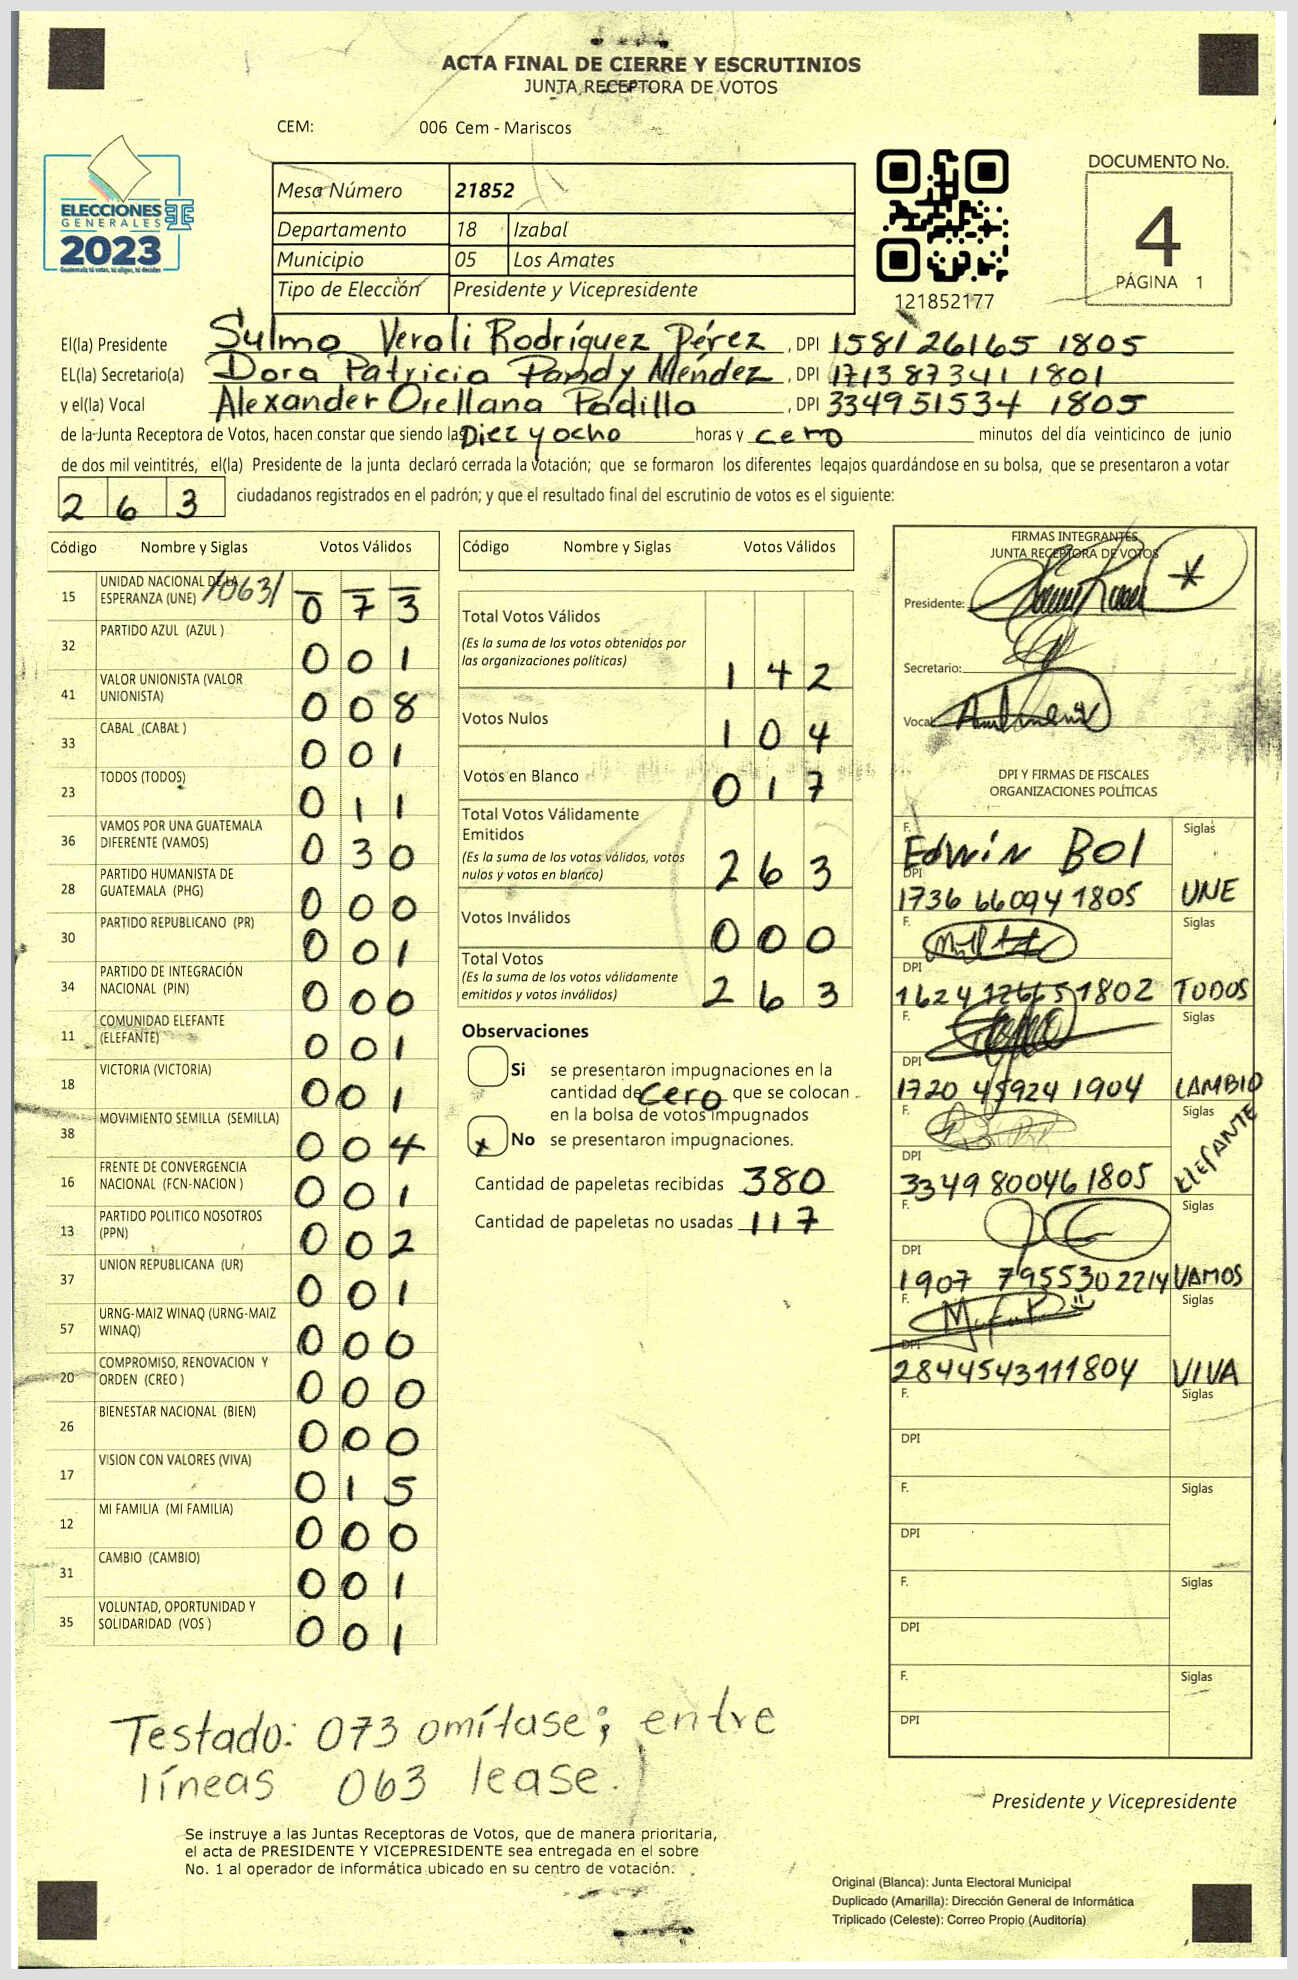 ACTA FINAL DE CIERRE Y ESCRUTINIOS
JUNTA RECEPTORA DE VOTOS
CEM: 006 Cem - Mariscos
ELECCIONES
GENERALES
2023
Guatemala: tú votas, tú eliges, tú decides
Mesa Número 21852
Departamento 18 Izabal
Municipio 05 Los Amates
Tipo de Elección Presidente y Vicepresidente
121852177
DOCUMENTO No.
4
PÁGINA 1
El(la) Presidente Sulmo Verali Rodríguez Pérez, DPI 1581 26165 1805
EL(la) Secretario(a) Dora Patricia Pandy Méndez, DPI 1713 87341 1801
y el(la) Vocal Alexander Orellana Padilla, DPI 334951534 1805
de la Junta Receptora de Votos, hacen constar que siendo las Diez y ocho horas y cero minutos del día veinticinco de junio
de dos mil veintitrés, el(la) Presidente de la junta declaró cerrada la votación; que se formaron los diferentes legajos guardándose en su bolsa, que se presentaron a votar
2 6 3 ciudadanos registrados en el padrón; y que el resultado final del escrutinio de votos es el siguiente:
Código Nombre y Siglas Votos Válidos
15 UNIDAD NACIONAL DE LA ESPERANZA (UNE) /063/ 0 7 3
32 PARTIDO AZUL (AZUL ) 0 0 1
41 VALOR UNIONISTA (VALOR UNIONISTA) 0 0 8
33 CABAL (CABAL ) 0 0 1
23 TODOS (TODOS) 0 1 1
36 VAMOS POR UNA GUATEMALA DIFERENTE (VAMOS) 0 3 0
28 PARTIDO HUMANISTA DE GUATEMALA (PHG) 0 0 0
30 PARTIDO REPUBLICANO (PR) 0 0 1
34 PARTIDO DE INTEGRACIÓN NACIONAL (PIN) 0 0 0
11 COMUNIDAD ELEFANTE (ELEFANTE) 0 0 1
18 VICTORIA (VICTORIA) 0 0 1
38 MOVIMIENTO SEMILLA (SEMILLA) 0 0 4
16 FRENTE DE CONVERGENCIA NACIONAL (FCN-NACION ) 0 0 1
13 PARTIDO POLITICO NOSOTROS (PPN) 0 0 2
37 UNION REPUBLICANA (UR) 0 0 1
57 URNG-MAIZ WINAQ (URNG-MAIZ WINAQ) 0 0 0
20 COMPROMISO, RENOVACION Y ORDEN (CREO ) 0 0 0
26 BIENESTAR NACIONAL (BIEN) 0 0 0
17 VISION CON VALORES (VIVA) 0 1 5
12 MI FAMILIA (MI FAMILIA) 0 0 0
31 CAMBIO (CAMBIO) 0 0 1
35 VOLUNTAD, OPORTUNIDAD Y SOLIDARIDAD (VOS ) 0 0 1
Código Nombre y Siglas Votos Válidos
Total Votos Válidos
(Es la suma de los votos obtenidos por
las organizaciones políticas) 1 4 2
Votos Nulos 1 0 4
Votos en Blanco 0 1 7
Total Votos Válidamente
Emitidos
(Es la suma de los votos válidos, votos
nulos y votos en blanco) 2 6 3
Votos Inválidos 0 0 0
Total Votos
(Es la suma de los votos válidamente
emitidos y votos inválidos) 2 6 3
Observaciones
Si se presentaron impugnaciones en la
cantidad de cero que se colocan
en la bolsa de votos impugnados
x No se presentaron impugnaciones.
Cantidad de papeletas recibidas 380
Cantidad de papeletas no usadas 117
FIRMAS INTEGRANTES
JUNTA RECEPTORA DE VOTOS
Presidente:
Secretario:
Vocal:
DPI Y FIRMAS DE FISCALES
ORGANIZACIONES POLÍTICAS
F. Edwin Bol Siglas
DPI
1736 66094 1805 UNE
F. Siglas
DPI
1802 TODOS
F. Siglas
DPI
1720 45924 1904 CAMBIO
F. Siglas
DPI
3349 80046 1805 ELEFANTE
F. Siglas
DPI
1907 7955302214 VAMOS
F. Siglas
DPI
2844543111804 VIVA
F. Siglas
DPI
F. Siglas
DPI
F. Siglas
DPI
F. Siglas
DPI
Testado: 073 omítase; entre
líneas 063 lease.
Presidente y Vicepresidente
Se instruye a las Juntas Receptoras de Votos, que de manera prioritaria,
el acta de PRESIDENTE Y VICEPRESIDENTE sea entregada en el sobre
No. 1 al operador de informática ubicado en su centro de votación.
Original (Blanca): Junta Electoral Municipal
Duplicado (Amarilla): Dirección General de Informática
Triplicado (Celeste): Correo Propio (Auditoría)